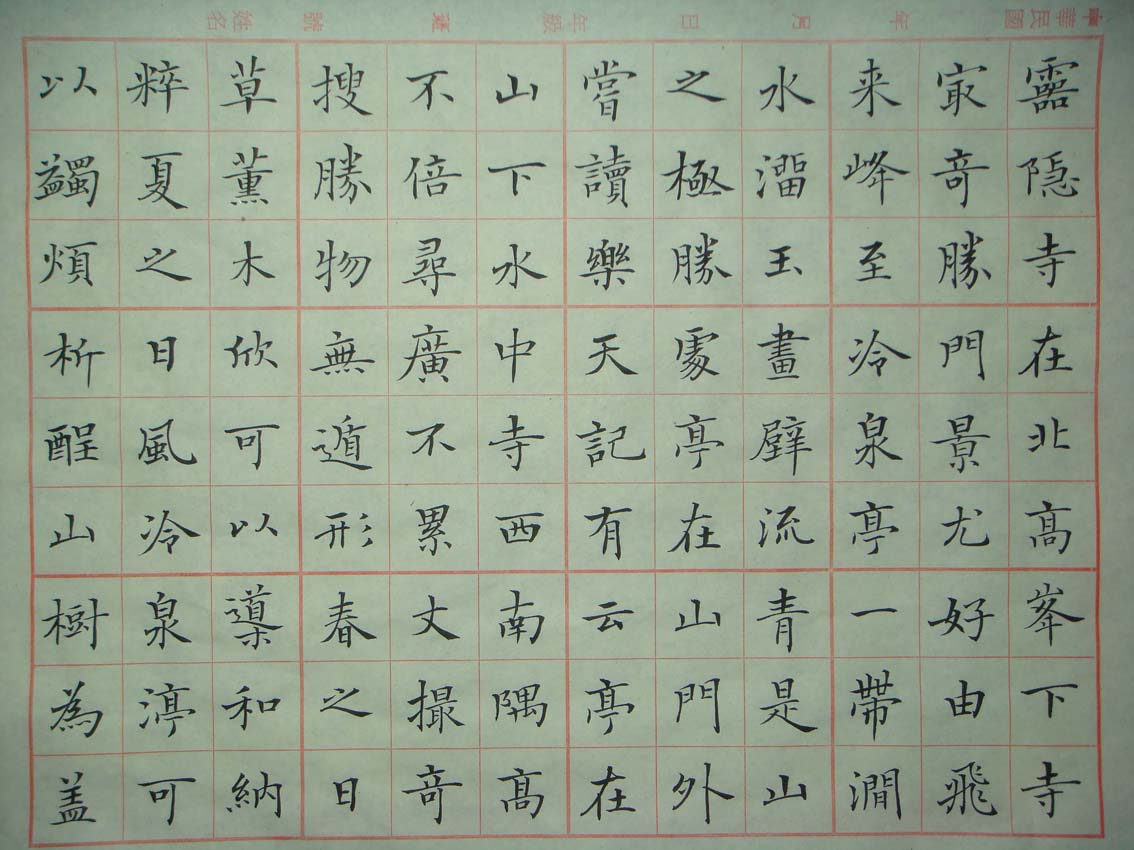 中華民國 年 月 日 年級 班 號 姓名
靈隐寺在北髙峯下寺
㝡竒勝門景尤好由飛
来峰至冷泉亭一帶澗
水溜玉畫壁流青是山
之極勝處亭在山門外
嘗讀樂天記有云亭在
山下水中寺西南隅髙
不倍尋廣不累丈撮竒
搜勝物無遁形春之日
草薰木欣可以導和納
粹夏之日風冷泉渟可
以蠲煩析酲山樹為盖